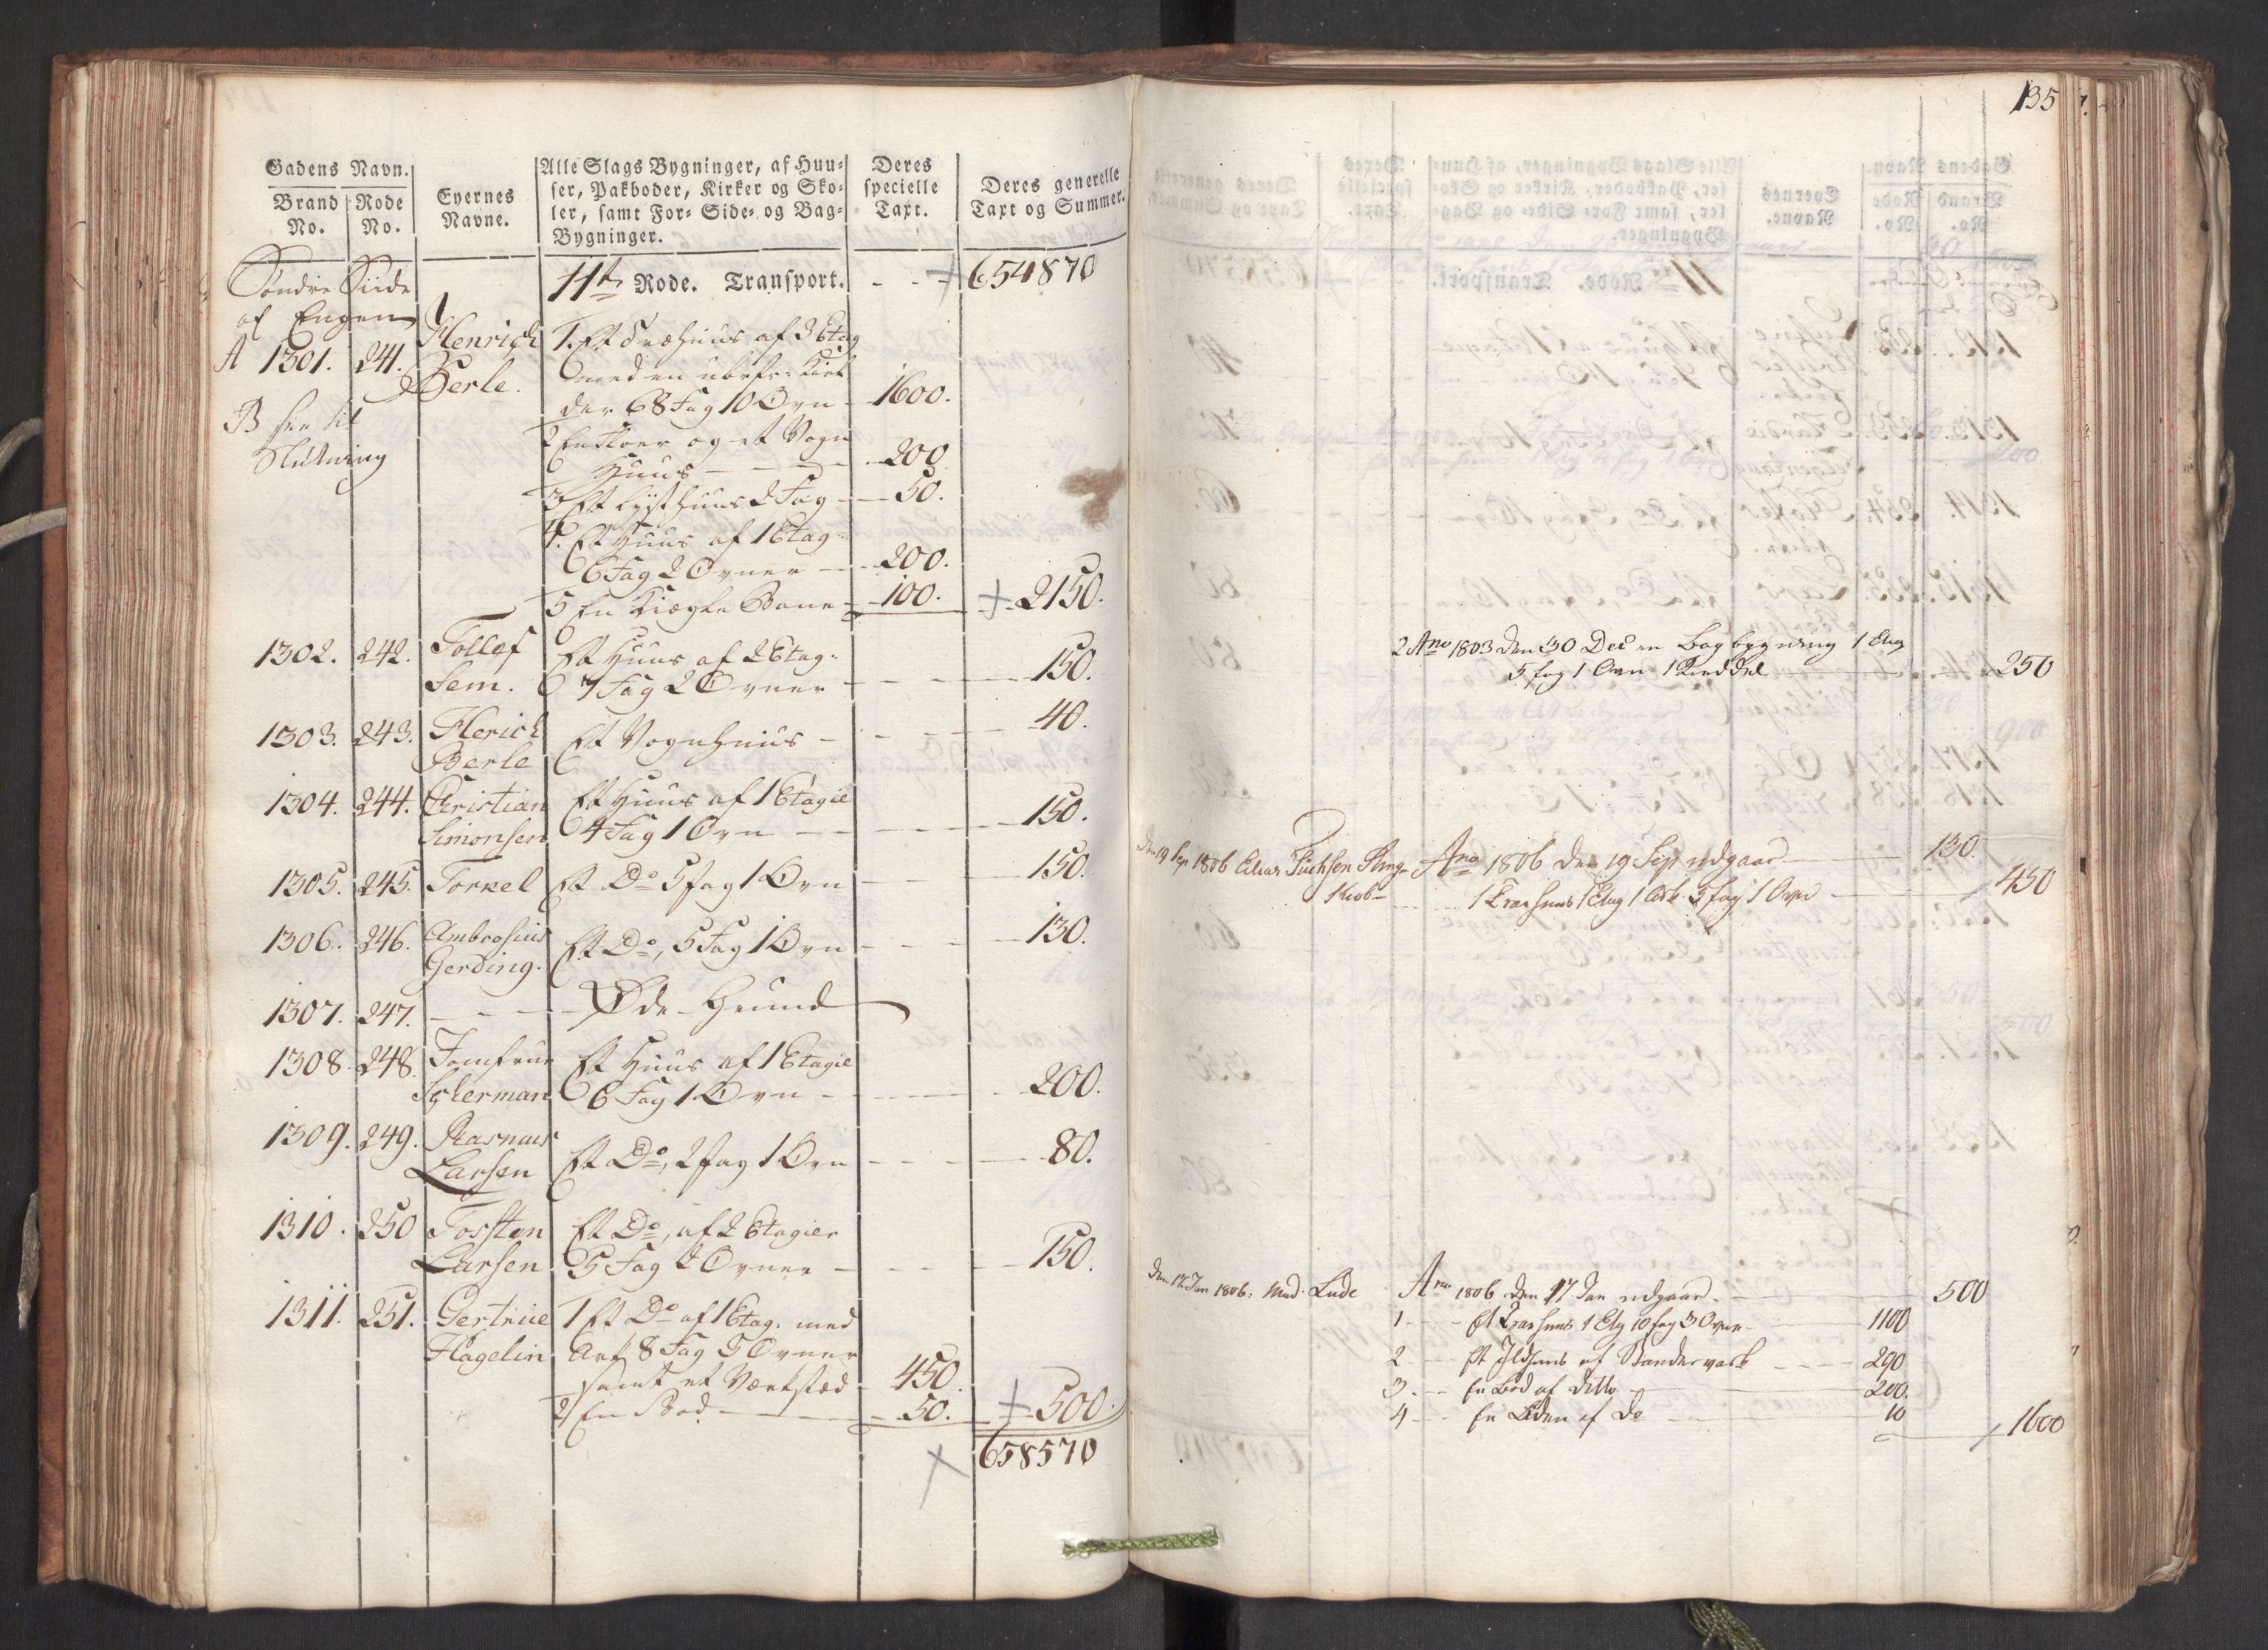 Gadens Navn.
Brand No.
Rode No.
Eyernes Navne.
Alle Slags Bygninger, af Huu=
ser, Pakboder, Kirker og Sko=
ler, samt For= Side= og Bag=
Bygninger.
Deres
specielle
Taxt.
Deres generelle
Taxt og Summer.
Søndre Siide
af Engen
11te Rode. Transport. 654870
A 1301. 241. Henrich Berle.
1. Et Træhuus af 3 Etag
med en
der 68 Fag 10 Ovn 1600.
B see til
Slutning
2 En og et Vogn
Huus 200
3 Et Lysthuus 2 Fag 50.
4. Et Huus af 1 Etag
6 Fag 2 Ovner 200.
5 En Kiegle Bane 100. 2150.
1302. 242. Tollef Sem.
Et Huus af 2 Etag.
7 Fag 2 Ovner 150.
1303. 243. Herich Berle
Et Vognhuus 40.
1304. 244. Christian Simonsen
Et Huus af 1 Etagie
4 Fag 1 Ovn 150.
1305. 245. Torkel Et Do 5 fag 1 Ovn 150.
1306. 246. Ambrosius Gerding.
Et Do, 5 Fag 1 Ovn 130.
1307. 247. Øde Grund
1308. 248. Jomfrue Sykerman
Et Huus af 1 Etagie
6 Fag 1 Ovn 200.
1309. 249. Rasmus Larsen
Et Do, 2 fag 1 Ovn 80.
1310. 250 Torsten Larsen
Et Do, af 2 Etagier
5 Fag 2 Ovner 150.
1311. 251. Gertrue Hagelin
1 Et Do af 1 Etag. med
Ark 8 Fag 5 Ovner
samt et Værksted 450.
2 En Bod 50. 500.
658570
135
2 Ano 1803 den 30 Dec en Bagbygning 1 Etag
5 fag 1 Ovn 1 Kieddel 250
Den 19 Sep 1806 Ano 1806 den 19 Sep udgaar 130.
1 Træehuus 1 Etag 1 Ark 5 fag 1 Ovn 450
Den 17 Jan 1806. Mad. Lude Ano 1806 den 17 Jan udgaar. 500
1 Et Træehuus 1 Etg 10 fag 3 Ovne 1100
2 Et Ildhuus af Bindverck 290
3. En Bod af Ditto 200.
4 En Liden af Do 10 1600